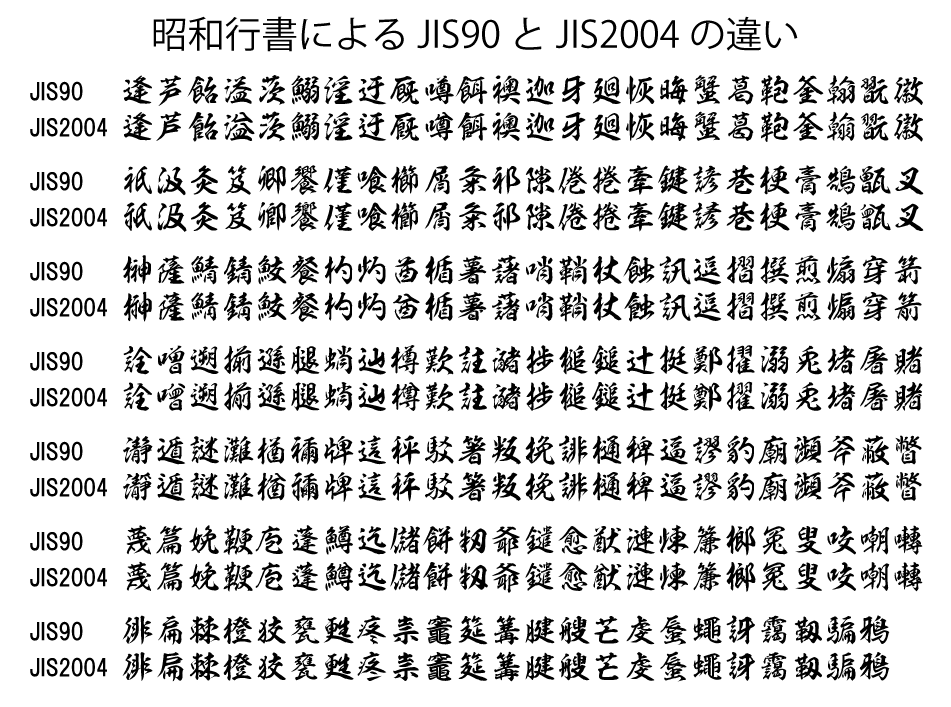 昭和行書による JIS90 と JIS2004 の違い
JIS90 逢芦飴溢茨鰯淫迂厩噂餌襖迦牙廻恢晦蟹葛鞄釜翰翫徽
JIS2004 逢芦飴溢茨鰯淫迂厩噂餌襖迦牙廻恢晦蟹葛鞄釜翰翫徽
JIS90 祇汲灸笈卿饗僅喰櫛屑粂祁隙倦捲牽鍵諺巷梗膏鵠甑叉
JIS2004 祇汲灸笈卿饗僅喰櫛屑粂祁隙倦捲牽鍵諺巷梗膏鵠甑叉
JIS90 榊薩鯖錆鮫餐杓灼酋楯薯藷哨鞘杖蝕訊逗摺撰煎煽穿箭
JIS2004 榊薩鯖錆鮫餐杓灼酋楯薯藷哨鞘杖蝕訊逗摺撰煎煽穿箭
JIS90 詮噌遡揃遜腿蛸辿樽歎註瀦捗槌鎚辻挺鄭擢溺兎堵屠賭
JIS2004 詮噌遡揃遜腿蛸辿樽歎註瀦捗槌鎚辻挺鄭擢溺兎堵屠賭
JIS90 瀞遁謎灘楢禰牌這秤駁箸叛挽誹樋稗逼謬豹廟瀕斧蔽瞥
JIS2004 瀞遁謎灘楢禰牌這秤駁箸叛挽誹樋稗逼謬豹廟瀕斧蔽瞥
JIS90 蔑篇娩鞭庖蓬鱒迄儲餅籾爺鑓愈猷漣煉簾榔冤叟咬嘲囀
JIS2004 蔑篇娩鞭庖蓬鱒迄儲餅籾爺鑓愈猷漣煉簾榔冤叟咬嘲囀
JIS90 徘扁棘橙狡甕甦疼祟竈筵篝腱艘芒虔蜃蠅訝靄靱騙鴉
JIS2004 徘扁棘橙狡甕甦疼祟竈筵篝腱艘芒虔蜃蠅訝靄靱騙鴉